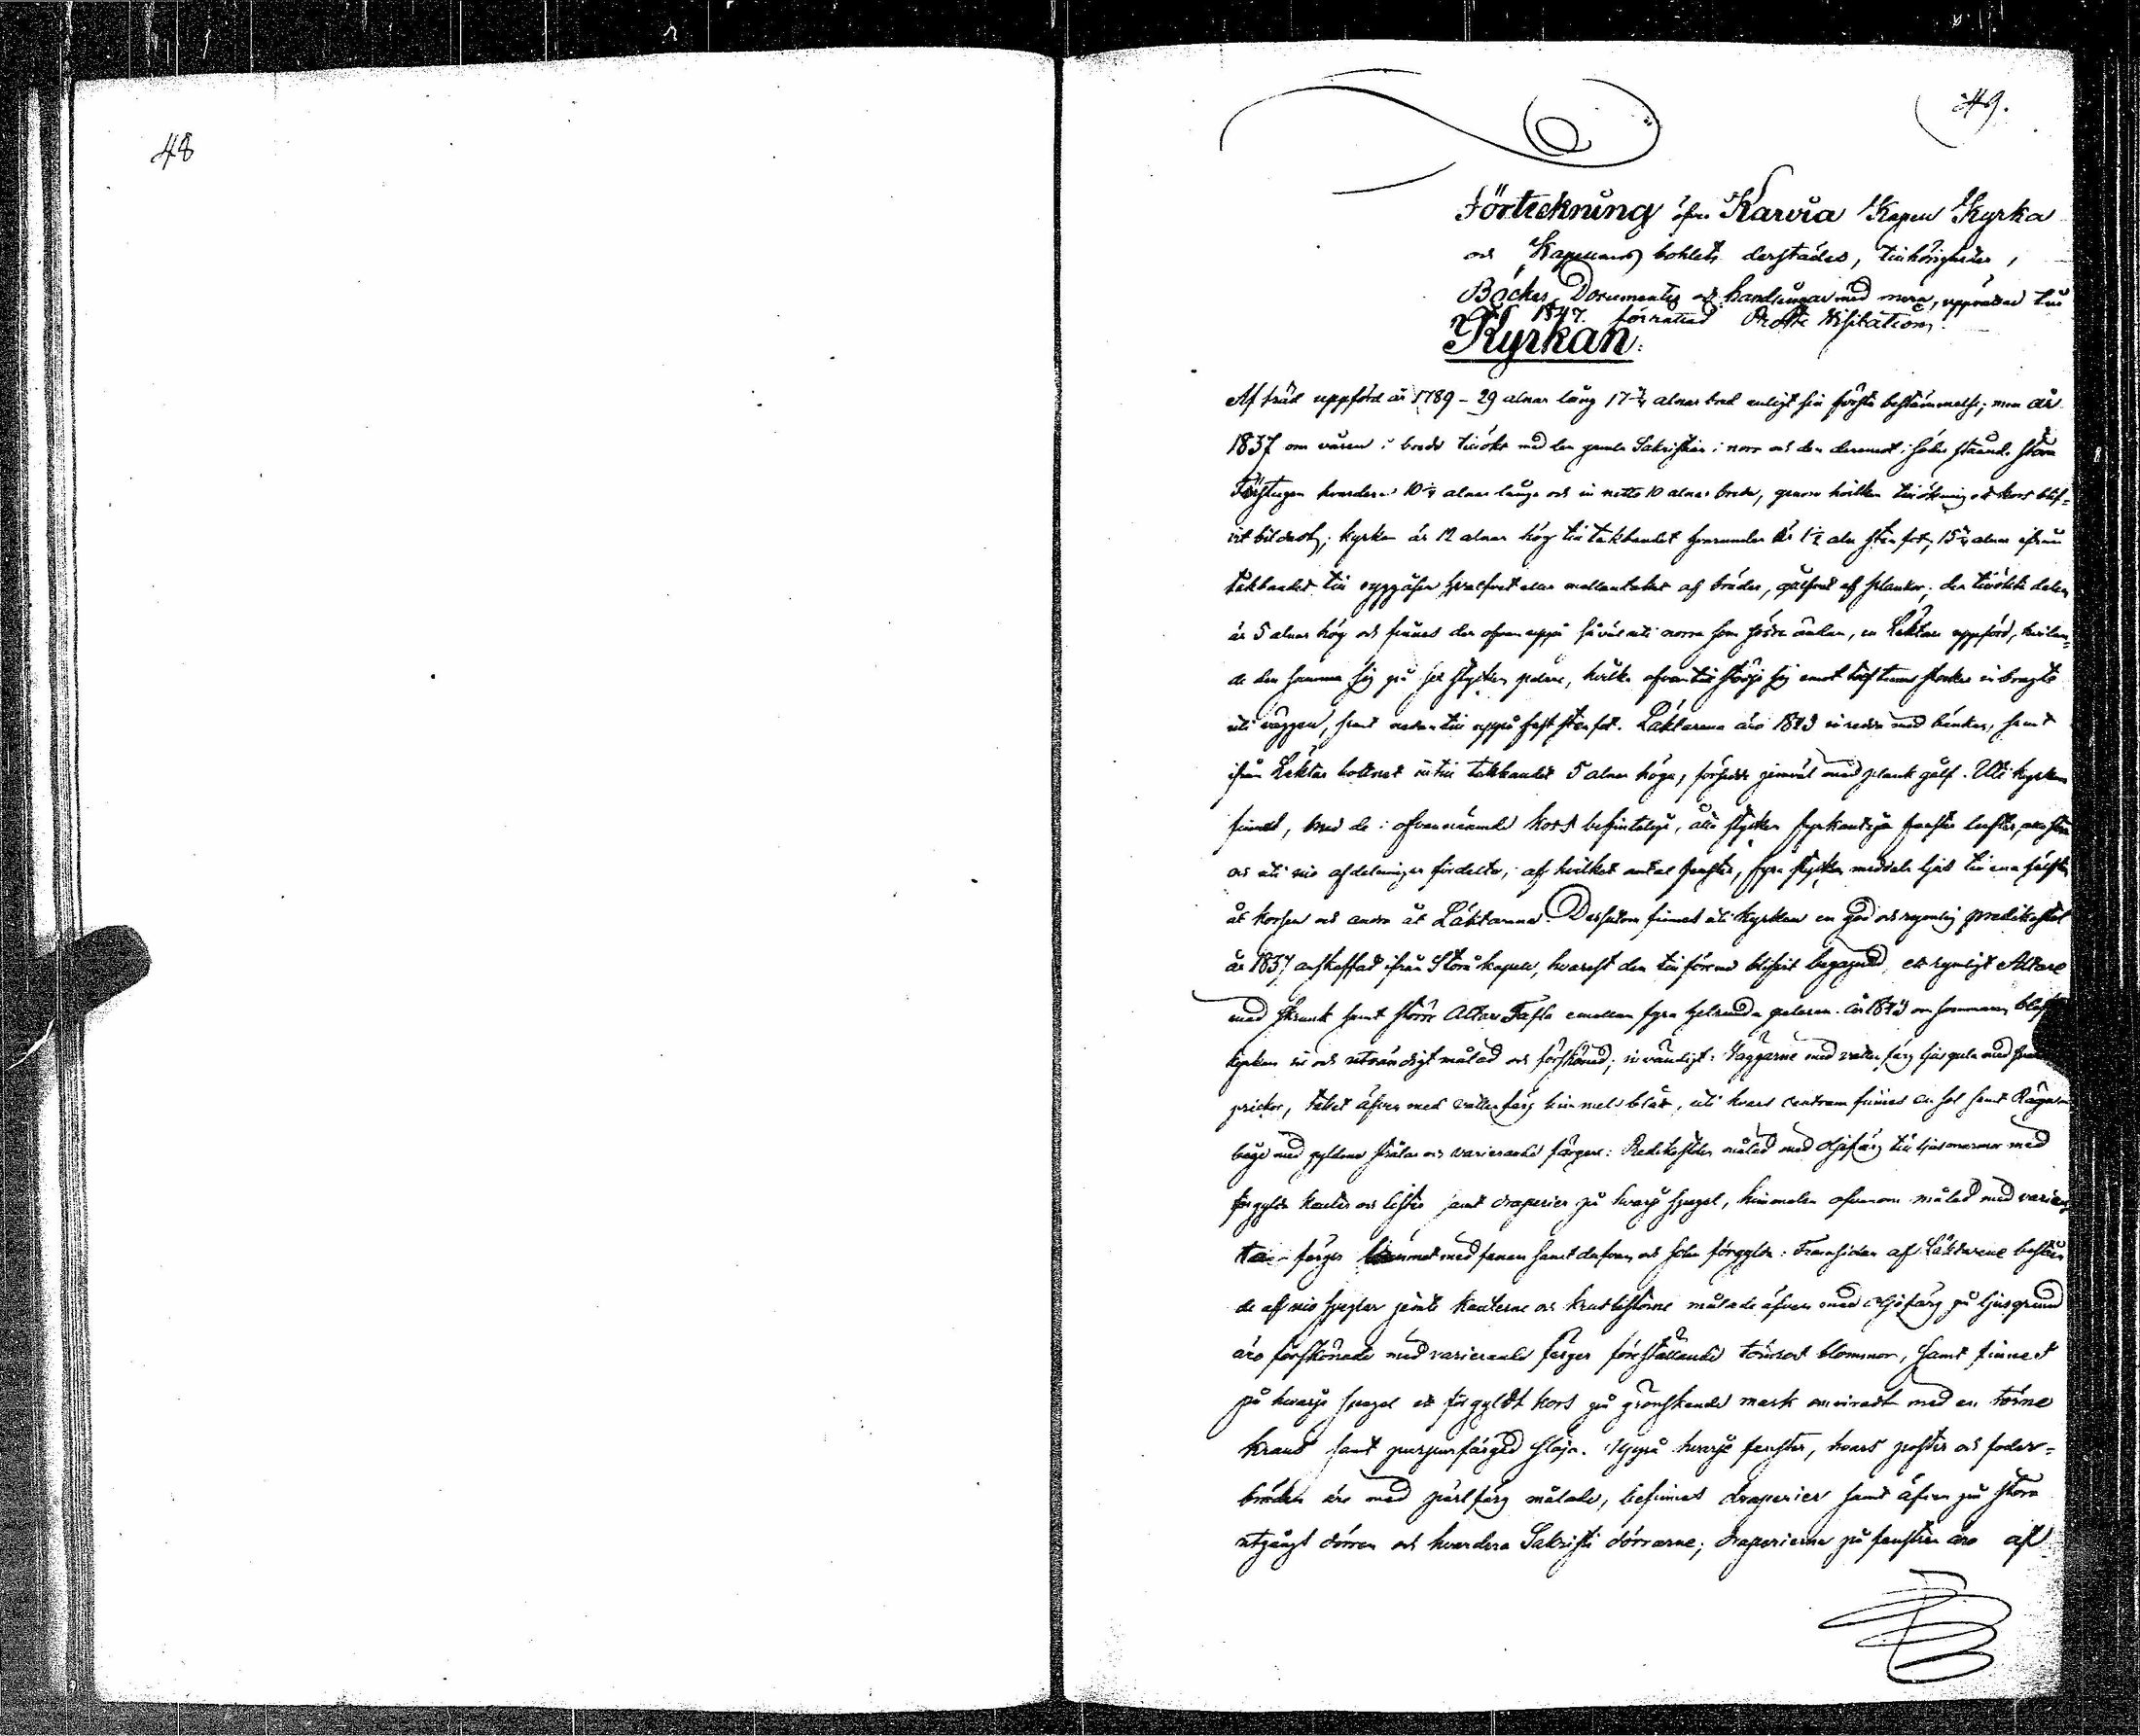 48
49.
Förteckning öfver Karvia Kapell Kyrka
och Kapellans bohlets derstädes, tillhörigheter,
Böcker, Documenter och handlingar med mera, upprättad till
1847. förrättad Probste Visitation.
Kyrkan:
Af träd uppförd år 1789 – 29 alnar lång 17 3/4 alnar bred enligt sin första bestämmelse; men år
1837 om våren i bredd tillökt med den gamla Sakristian i norr och den deremot i söder stående stora
Förstugan hvardera 10 1/4 alnar långa och in netto 10 alnar breda, genom hvilken tillökning ett kors blif-
vit bildadt; kyrkan är 12 alnar hög till takbandet hvarunder är 1 1/2 aln stenfot, 15 3/4 alnar ifrån
takbandet till ryggåsen hvalfvet eller mellantaket af bräder, golfvet af plankor; den tillökta delen
är 5 alnar hög och finnes der ofvanuppå såväl uti norra som södra ändan, en Läktare uppförd, hvilan-
de den samma sig på sex stycken pelare, hvilka ofvantill stödja sig emot tolftums stockar inbragte
uti väggen, samt nedantill uppå fast stenfot. Läktarena äro 1843 inredde med bänkar, samt
ifrån Läktar bottnet intill takbandet 5 alnar höga, försedde jemväl med plank golf. Uti kyrkan
finnes, med de i ofvannämnde kors befinteliga, åtta stycken fyrkantiga fenster lufter, alla stora
och uti nio afdelningar fördelte, af hvilket antal fenster, fyra stycken meddela ljus till ena hälften
åt korsen och andra åt Läktarena. Dessutom finnes uti kyrkan en god och rymlig predikstol
år 1837 anskaffad ifrån Storå kapell, hvarest den tillförene blifvit begagnad, ett rymligt Altare
med skrank samt större Altar Tafla emellan fyra helrunda pelaren. År 1843 om sommaren blef
kyrkan in och utvändigt målad och förskönad; invändigt: Väggarne med vatten färg ljusgula med
prickor, taket äfven med vattenfärg himmels blått, uti hvars centrum finnes en sol samt Rägn
båge med gyldene strålar och varierande färgor: Predikstolen målad med oljefärg till ljus marmor med
förgylda kanter och lister samt draperier på hvarje spegel, himmelen ofvanom målad med varieran
färger samt dufvan och solen förgylda: Framsidan af Läktarene beståen
de af nio speglar jemte kanterne och krantslisterne målade äfven med oljefärg på ljusgrund
äro förskönade med varierande färger föreställande törnros blommor, samt finnes
på hvarje spegel ett förgyldt kors på grönskande mark omviradt med en törne
krans samt purpurfärgad slöja. Uppå hvarje fenster, hvars poster och foder-
bräden äro med perlfärg målade, befinnes draperier samt äfven på stora
utgångs dörren och hvardera Sakristi dörrarne; draperierne på fenstren äro af